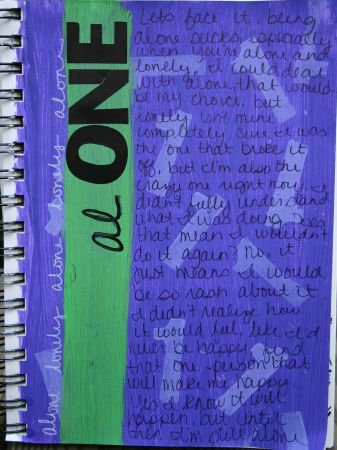 alone lonely alone lonely alone
al ONE
Lets face it, being
alone sucks, especially
when you're alone and
lonely. I could deal
with alone, that would
be my choice, but
lonely isn't mine.
completely sure I was
the one that broke it
off, but I'm also the
crazy one right now. I
didn't fully understand
what I was doing. Does
that mean I wouldn't
do it again? No, it
just means I would
be so rash about it
I didn't realize how
it would feel, like I'd
never be happy, find
that one person that
will make me happy.
Yes I know it will
happen, but until
then I'm still alone